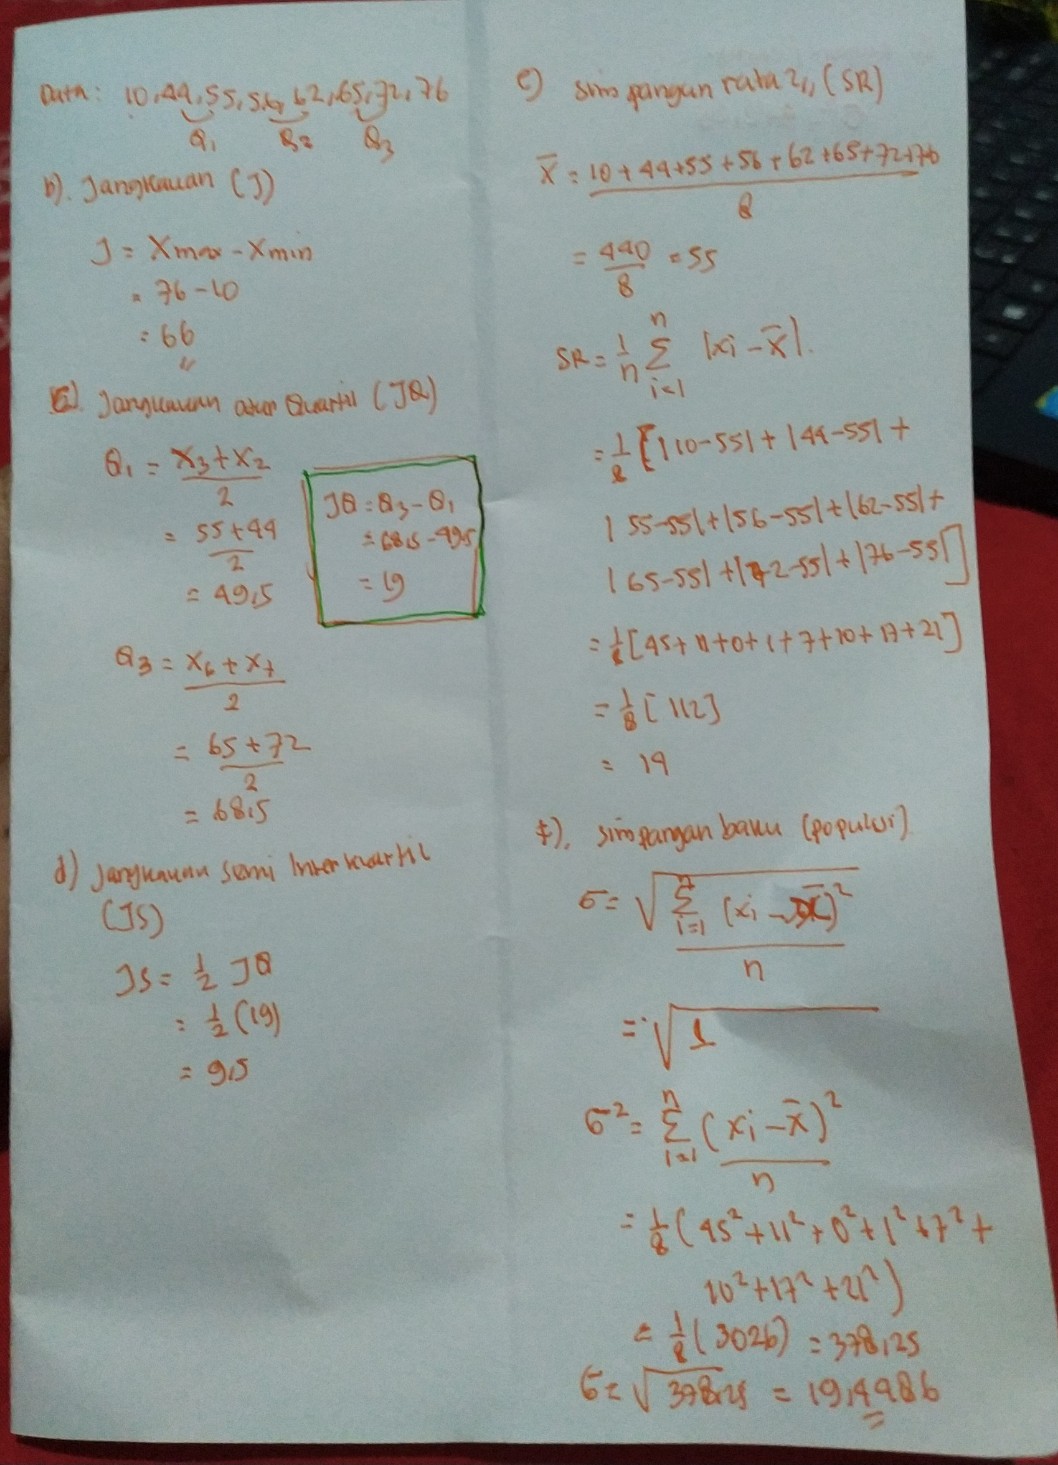 Data: 10, 44, 55, 56, 62, 65, 72, 76
Q₁ Q₂ Q₃
b). Jangkauan (J)
J = Xmax - Xmin
= 76-10
= 66
c). Jangkauan antar Quartil (JQ)
Q₁ = X₃+X₂ / 2
= 55+44 / 2
= 49,5
JQ = Q₃ - Q₁
= 68,5 - 49,5
= 19
Q₃ = X₆ + X₇ / 2
= 65+72 / 2
= 68,5
d) Jangkauan Semi Interkuartil
(JS)
JS = ½ JQ
= ½ (19)
= 9,5
e) Simpangan rata2,, (SR)
x̄ = 10+44+55+56+62+65+72+76 / 8
= 440/8 = 55
SR = 1/n Σ |xi - x̄|.
n
i=1
= 1/8 [|10-55| + |44-55| +
|55-55|+|56-55|+|62-55|+
|65-55|+|72-55|+|76-55|]
= 1/8 [45+11+0+1+7+10+17+21]
= 1/8 [112]
= 14
f). Simpangan baku (populasi)
σ = √ Σ (xi - x̄)² / n
n
i=1
= √1
σ² = Σ (xi - x̄)² / n
n
i=1
= 1/8 (45²+11²+0²+1²+7²+
10²+17²+21²)
= 1/8 (3026) = 378,25
σ = √378,25 = 19,4486